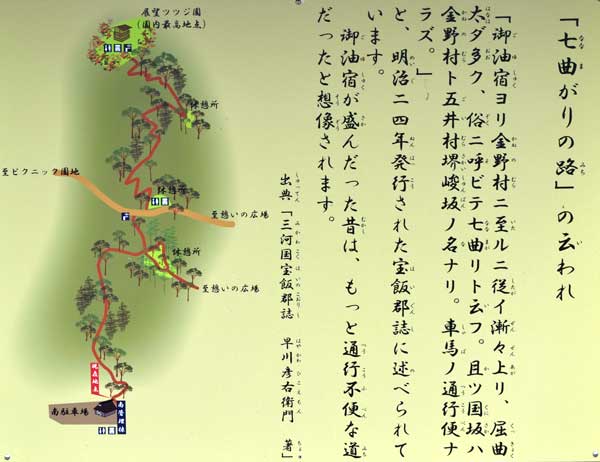 「七曲がりの路」の云われ
「御油宿ヨリ金野村ニ至ルニ従イ漸々上リ、屈曲
太ダ多ク、俗ニ呼ビテ七曲リト云フ。且ツ国坂ハ
金野村ト五井村堺峻坂ノ名ナリ。車馬ノ通行便ナ
ラズ。」
と、明治二四年発行された宝飯郡誌に述べられて
います。
御油宿が盛んだった昔は、もっと通行不便な道
だったと想像されます。
出典「三河国宝飯郡誌 早川彦右衛門 著」
展望ツツジ園
(園内最高地点)
休憩所
至ピクニック園地
休憩所
至憩いの広場
休憩所
至憩いの広場
現在地点
南管理棟
南駐車場